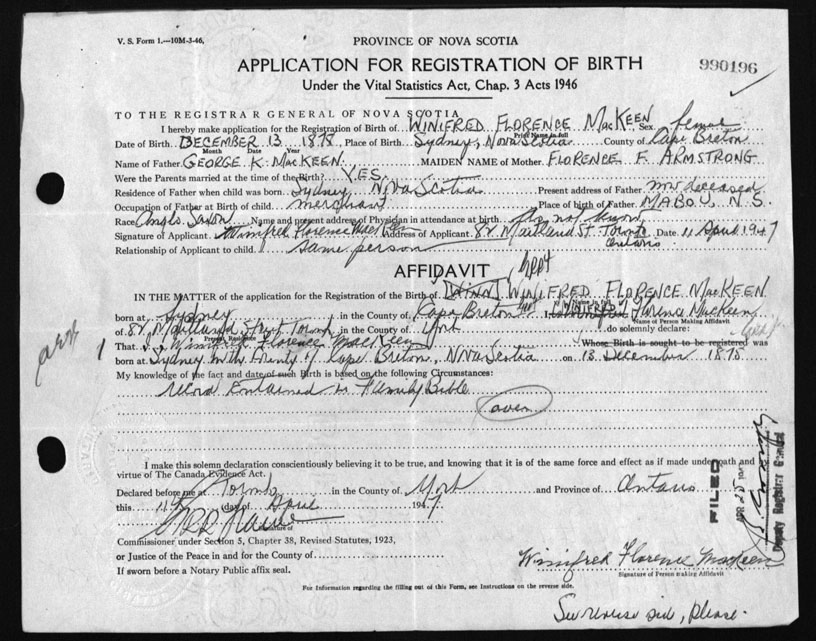 V. S. Form 1.—10M-3-46,
PROVINCE OF NOVA SCOTIA
APPLICATION FOR REGISTRATION OF BIRTH
990196
Under the Vital Statistics Act, Chap. 3 Acts 1946
TO THE REGISTRAR GENERAL OF NOVA SCOTIA
I hereby make application for the Registration of Birth of WINIFRED FLORENCE MACKEEN Sex female
Print Name in full
Date of Birth DECEMBER 13 1878 Place of Birth Sydney, Nova Scotia County of Cape Breton
Month Date Year
Name of Father GEORGE K. MACKEEN MAIDEN NAME of Mother FLORENCE F. ARMSTRONG
Were the Parents married at the time of the Birth? YES
Residence of Father when child was born Sydney Nova Scotia Present address of Father now deceased
Occupation of Father at Birth of Child merchant Place of birth of Father MABOU N.S.
Race Anglo Saxon Name and present address of Physician in attendance at birth do not know
Signature of Applicant Winifred Florence MacKeen Address of Applicant 82 Maitland St. Toronto Ontario Date 11 April 1947
Relationship of Applicant to child same person
AFFIDAVIT
IN THE MATTER of the application for the Registration of Birth of WINIFRED FLORENCE MACKEEN
Print Name in full
born at Sydney in the County of Cape Breton I Florence MacKeen
Name of Person Making Affidavit
of 82 Maitland Street Toronto in the County of York do solemnly declare:
Present Residence
That I Winifred Florence MacKeen Whose Birth is sought to be registered was
born at Sydney in the County of Cape Breton, Nova Scotia on 13 December 1878
My knowledge of the fact and date of such Birth is based on the following Circumstances:
record contained in Family Bible
over
I make this solemn declaration conscientiously believing it to be true, and knowing that it is of the same force and effect as if made under oath and by
virtue of The Canada Evidence Act.
Declared before me at Toronto in the County of York and Province of Ontario
this 11th day of 1947.
Signature of
Commissioner under Section 5, Chapter 38, Revised Statutes, 1923,
or Justice of the Peace in and for the County of
If sworn before a Notary Public affix seal.
Winifred Florence MacKeen
Signature of Person Making Affidavit
For Information regarding the filling out of this Form, see Instructions on the reverse side.
See reverse side, please.
FILED
APR 25 1947
Deputy Registrar General